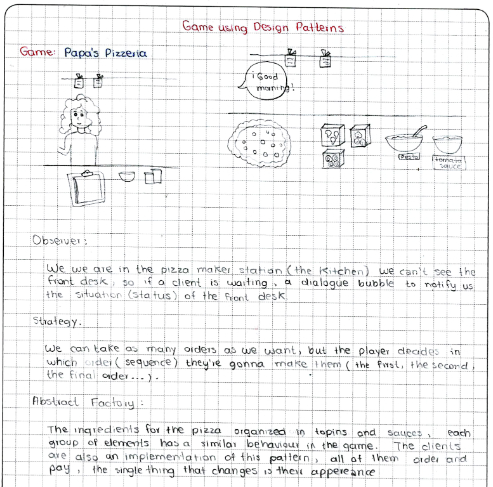 Game using Design Patterns
Game: Papa's Pizzeria
¡Good
morning!
tomato
sauce
Observer:
We we are in the pizza maker station (the kitchen) we can't see the
front desk, so if a client is waiting, a dialogue bubble to notify us
the situation (status) of the front desk
Strategy.
We can take as many orders as we want, but the player decides in
which order (sequence) they're gonna make them (the first, the second,
the final order...).
Abstract Factory:
The ingredients for the pizza organized in topins and sauces, each
group of elements has a similar behaviour in the game. The clients
are also an implementation of this pattern, all of them order and
pay, the single thing that changes is their appereance